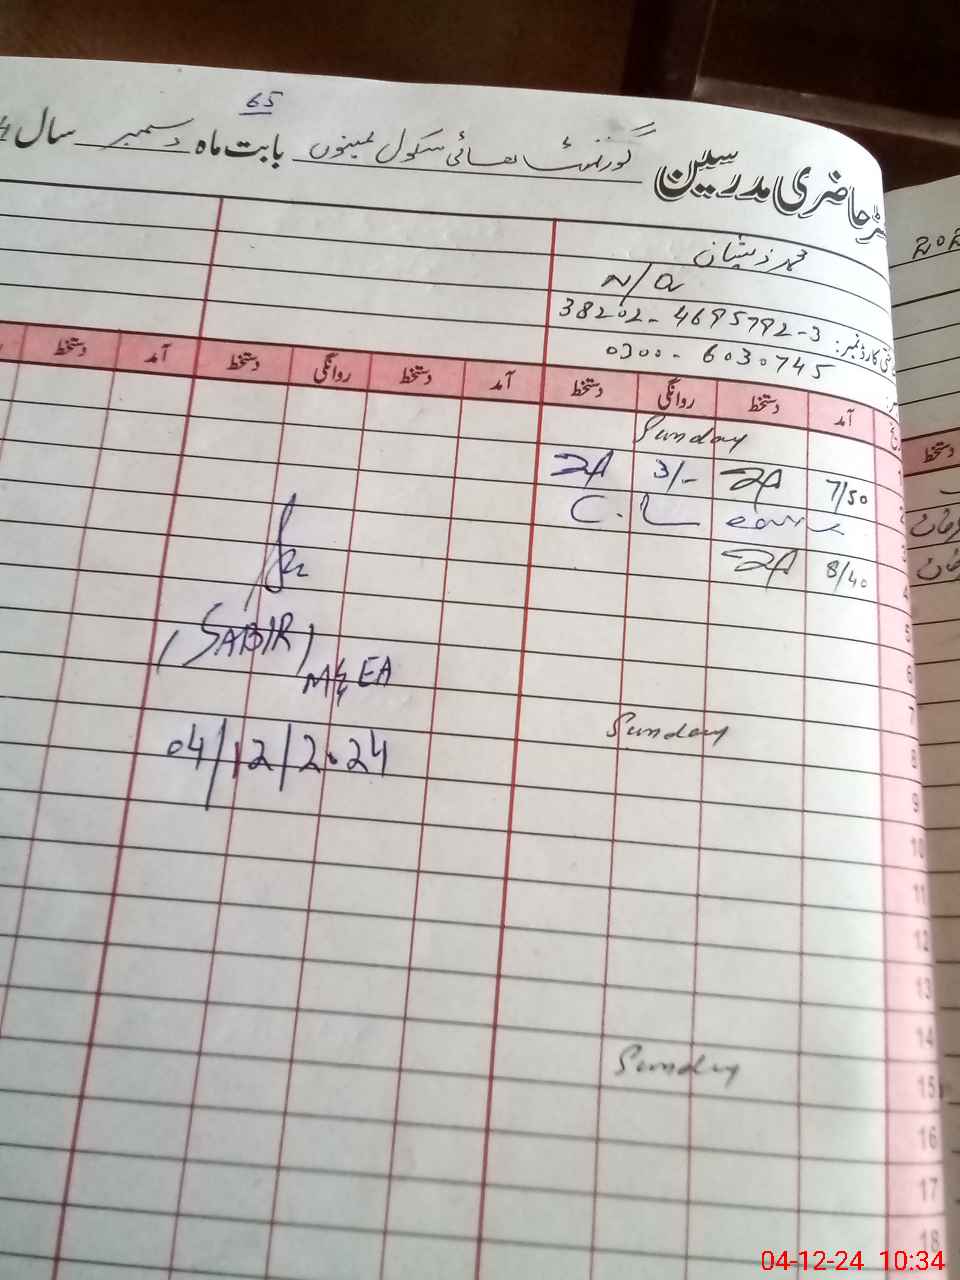 65
رجسٹر حاضری مدرسین گورنمنٹ ہائی سکول بابت ماہ دسمبر سال
محمد ذیشان
N/Q
38202-4695792-3
0300-6030745
آمد دستخط روانگی دستخط آمد دستخط روانگی دستخط آمد دستخط
دستخط
1 Sunday
2 7/50 3/-
3 C. Leave
4 8/40
5
6
7
8 Sunday
9
10
11
12
13
14
15 Sunday
16
17
18
(SABIR)
M&EA
04/12/2024
04-12-24 10:34